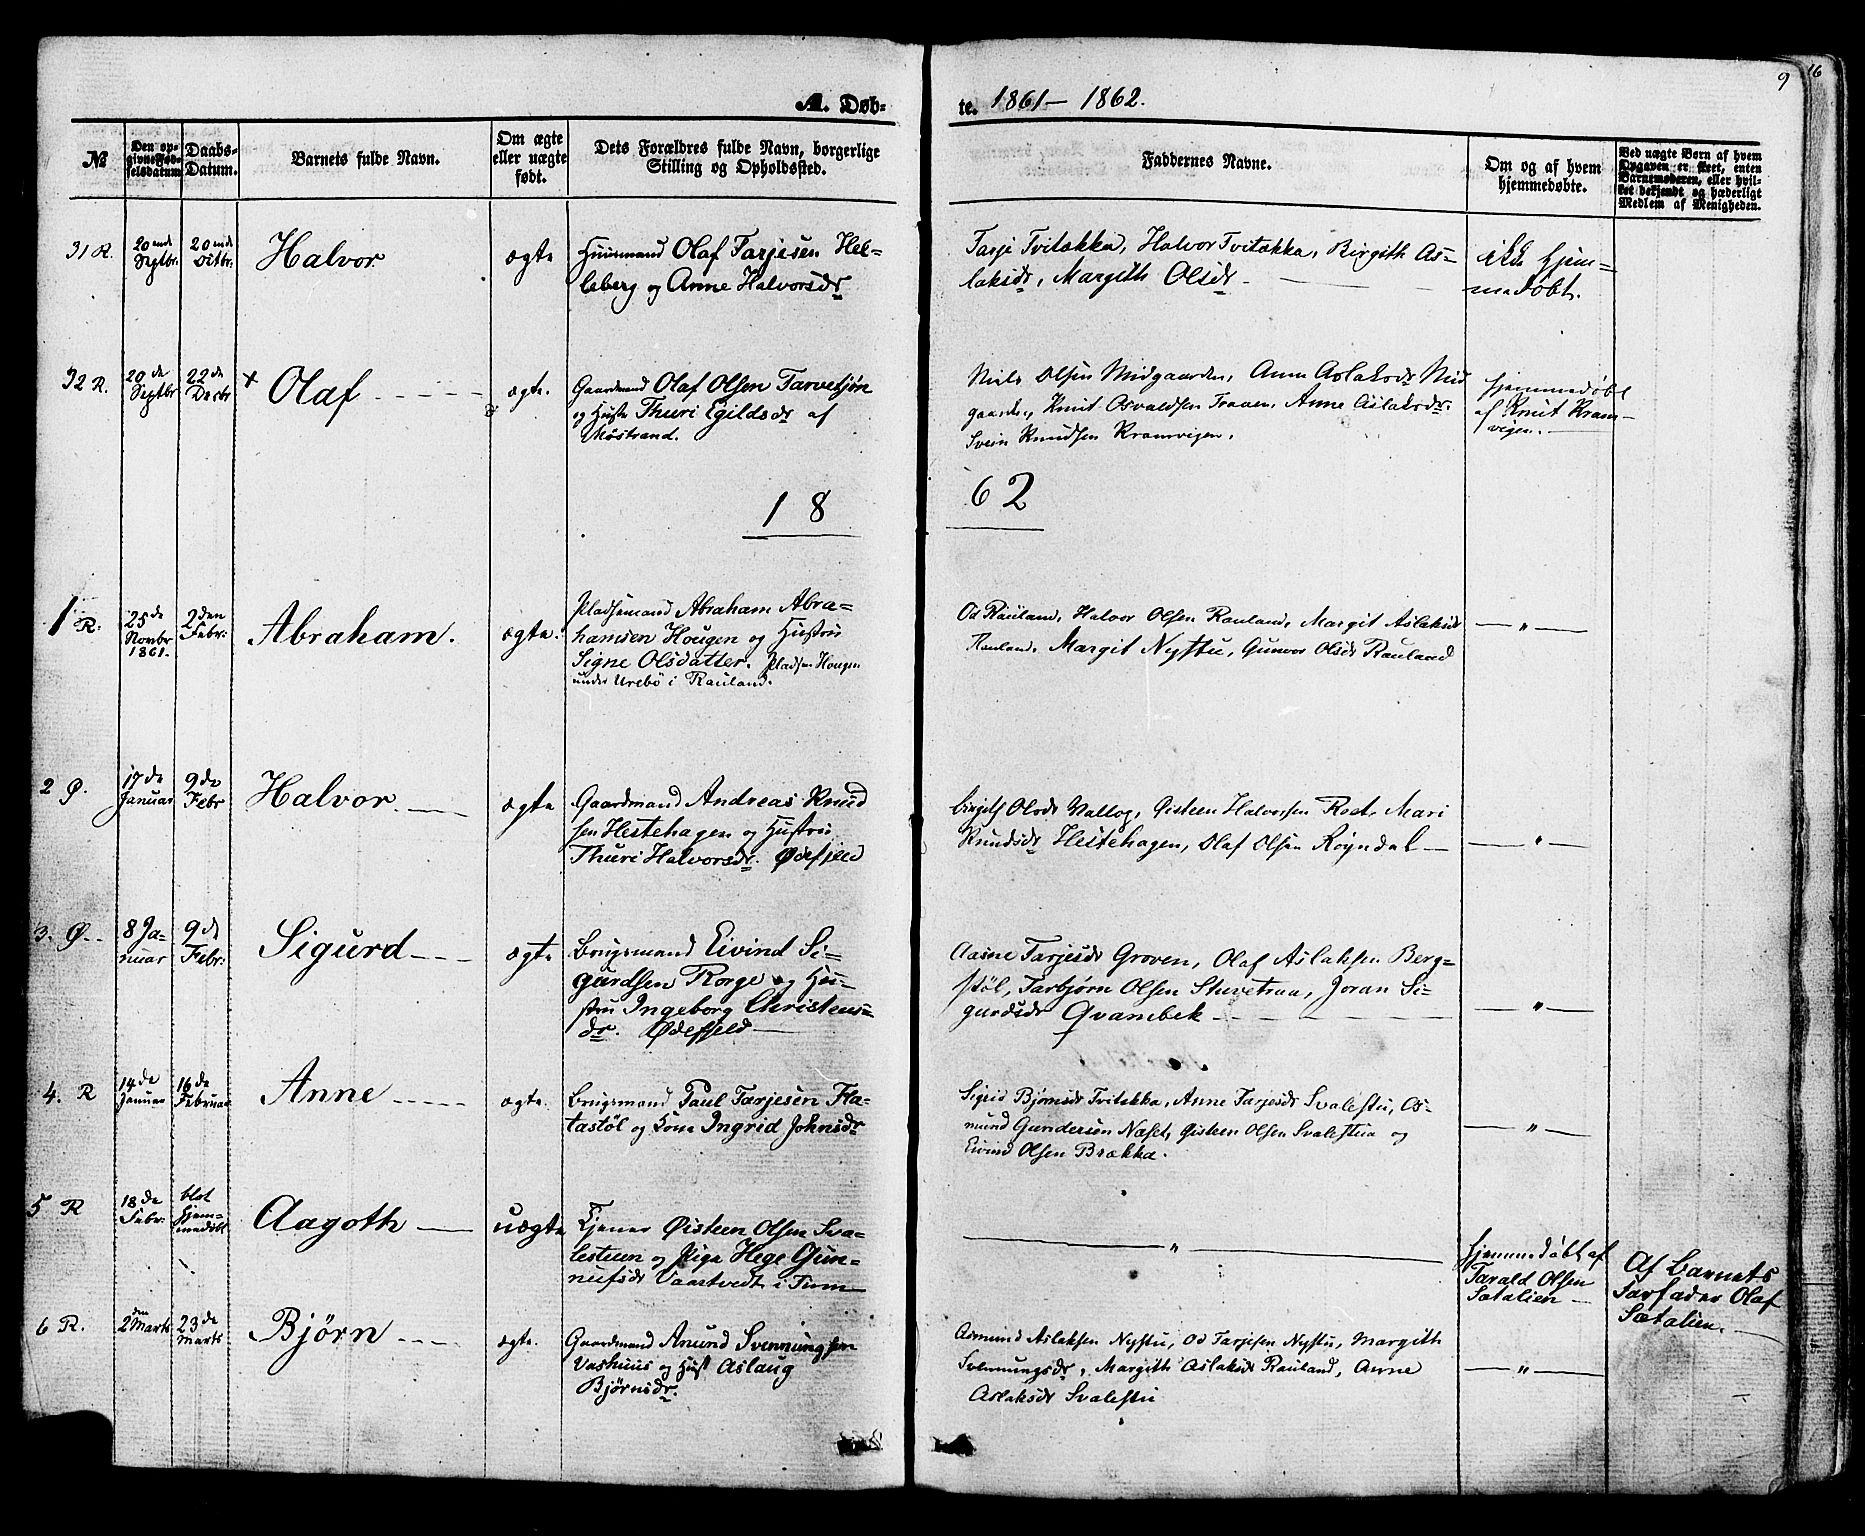 A. Døb-
te. 1861 – 1862.
9
16
№
Den op-
givne Fød-
selsdatum
Daabs-
Datum.
Barnets fulde Navn.
Om ægte
eller uægte
født.
Dets Forældres fulde Navn, borgerlige
Stilling og Opholdssted.
Faddernes Navne.
Om og af hvem
hjemmedøbte.
Ved uægte Børn af hvem
Opgaven er skeet, enten
Barnemoderen, eller hvil-
ket bekjendt og hæderligt
Medlem af Menigheden.
31 R.
20ende
Septbr.
20ende
Octbr.
Halvor
ægte
Huusmand Olaf Tarjesen Hel-
leberg og Anne Halvorsdr
Tarje Tvitækka, Halvor Tvitækka, Birgith As-
laksdr, Margith Olsdr –
ikke hjem-
medøbt.
32 R.
20de
Septbr
22de
Decbr
+ Olaf
ægte.
Gaardmand Olaf Olsen Tarvetjøn
og Hustr Thuri Egildsdr af
Møstrand.
Niels Olsen Midgaarden, Anne Aslaksdr Mid
gaarden, Knut Osvaldsen Traaen, Anne Aslaksdr.
Svein Knudsen Kramvigen.
hjemmedøbt
af Knut Kram-
vigen.
18
62
1 R.
25de
Novbr
1861.
2den
Febr:
Abraham.
ægte.
Pladsemand Abraham Abra-
hamsen Hougen og Hustru
Signe Olsdatter. Pladsen Hougen
under Urebø i Rauland.
Od Rauland, Halvor Olsen Rauland, Margit Aslaksdr
Rauland. Margit Nystu, Gunvor Olsdr Rauland
– " –
2 Ø.
17de
Januar
9de
Febr
Halvor
ægte
Gaardmand Andreas Knud
sen Hestehagen og Hustru
Thuri Halvorsdr. Ødefjeld
Birgith Olsdr Vallog, Østeen Halvorsen Roet, Mari
Knudsdr Hestehagen, Olaf Olsen Røyndal –
– " –
3. Ø.
8 Ja-
nuar
9de
Febr:
Sigurd
ægte
Brugsmand Eivind Si-
gurdsen Rorge og Hu-
stru Ingeborg Christens-
dr. Ødefjeld
Aasne Tarjesdr Groven, Olaf Aslaksen Berg-
støl, Tarbjørn Olsen Stuvetraa, Joran Si-
gurdsdr Qvambek –
– " –
4. R
14de
Januar
16de
Februar
Anne
ægte.
Brugsmand Paul Tarjesen Fla-
tastøl og Kone Ingrid Johnsdr
Sigrid Bjørnsdr Tvitækka, Anne Tarjesdr Svalestu, Os-
mund Gundersen Næset, Øisteen Olsen Svalestua og
Eivind Olsen Brækka.
– " –
5 R
18de
Febr:
blot
hjem-
medøbt
Aagoth
uægte
Tjener Øisteen Olsen Sva-
lestuen og Pige Hege Gun-
nufsdr Vaastvedt i Tinn
– " –
hjemmedøbt af
Tarald Olsen
Sætalien
Af Barnets
Farfader Olaf
Sætalien.
6 R.
2den
Marts
23de
Marts
Bjørn
ægte.
Gaardmand Anund Svennungsen
Vashuus og Hust Aslaug
Bjørnsdr.
Asmund Aslaksen Nystu, Od Tarjesen Nystu, Margith
Svennungsdr, Margith Aslaksdr Rauland, Anne
Aslaksdr Svalestu
– " –